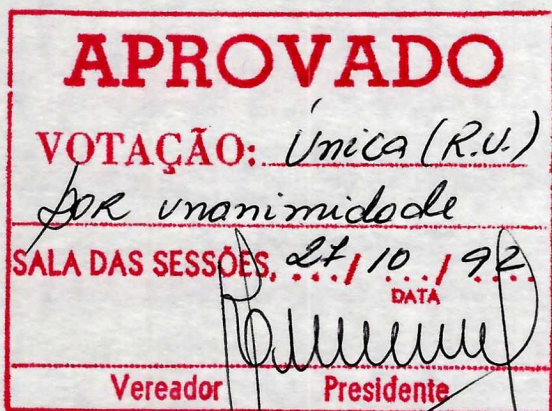 APROVADO
VOTAÇÃO: Única (R.U.)
por unanimidade
SALA DAS SESSÕES, 27/10/92
DATA
Vereador Presidente